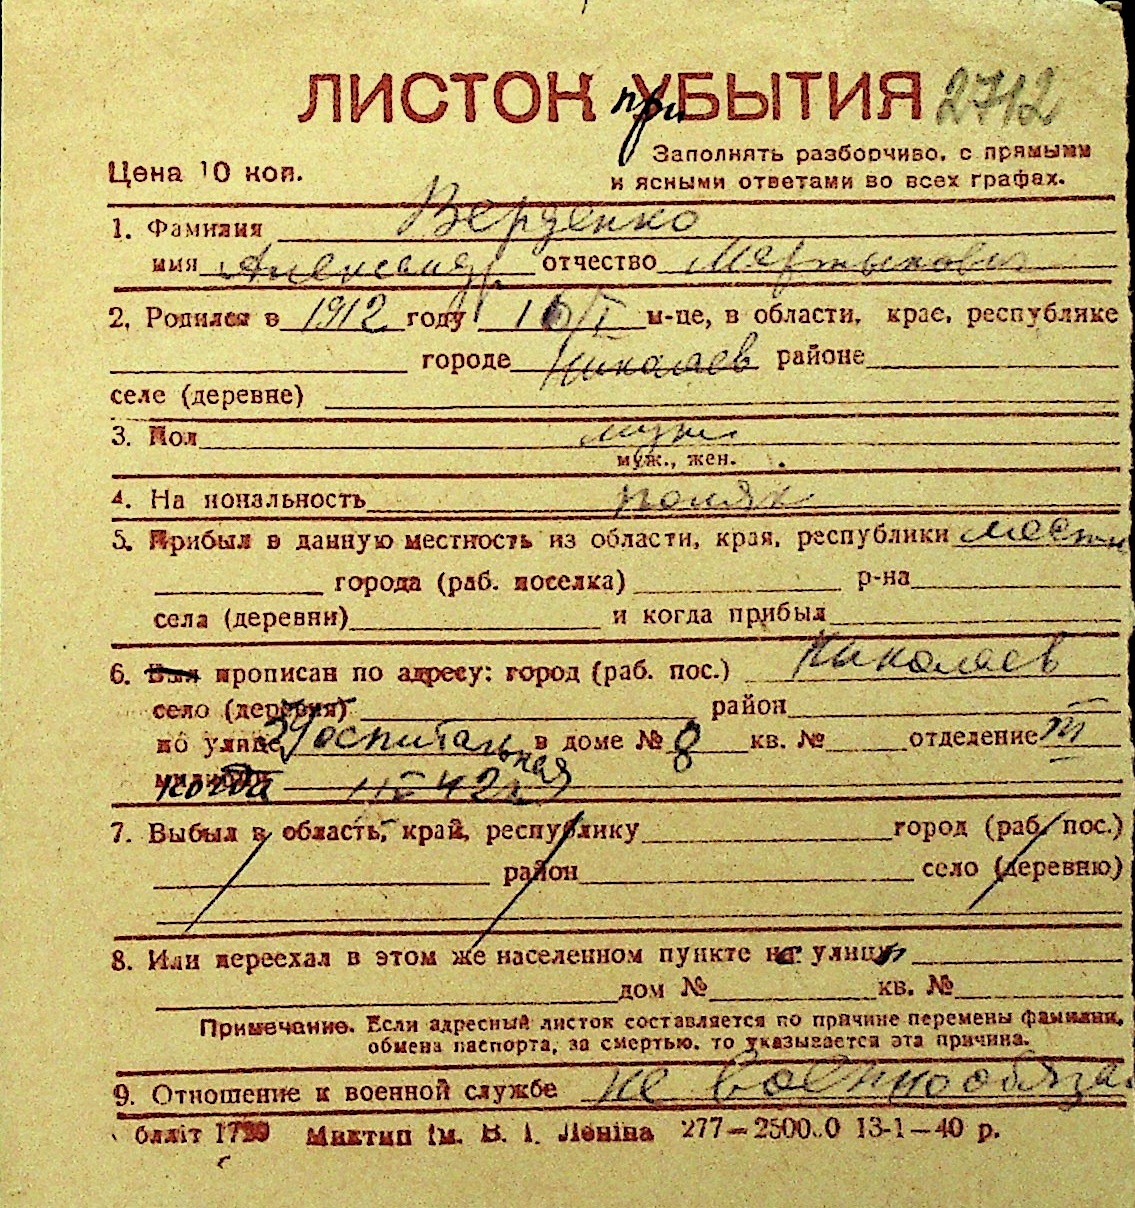 ЛИСТОК при УБЫТИЯ 2712
Цена 10 коп.
Заполнять разборчиво, с прямыми
и ясными ответами во всех графах.
1. Фамилия
имя Александр отчество
2. Родился в 1912 году 16/I м-це, в области, крае, республике
городе Николаев районе
селе (деревне)
3. Пол муж.
муж., жен.
4. На иональность поляк
5. Прибыл в данную местность из области, края, республики местн
города (раб. поселка) р-на
села (деревни) и когда прибыл
6. Был прописан по адресу: город (раб. пос.) Николаев
село (деревня) район
по улице Госпитальная в доме № 8 кв. № отделение III
милиции когда 42
7. Выбыл в область, край, республику город (раб. пос.)
район село (деревню)
8. Или переехал в этом же населенном пункте на улицу
дом № кв. №
Примечание. Если адресный листок составляется по причине перемены фамилии,
обмена паспорта, за смертью, то указывается эта причина.
9. Отношение к военной службе не военнообяза
блліт 1720 Миктип ім. В. І. Леніна 277—2500..0 13-1—40 р.